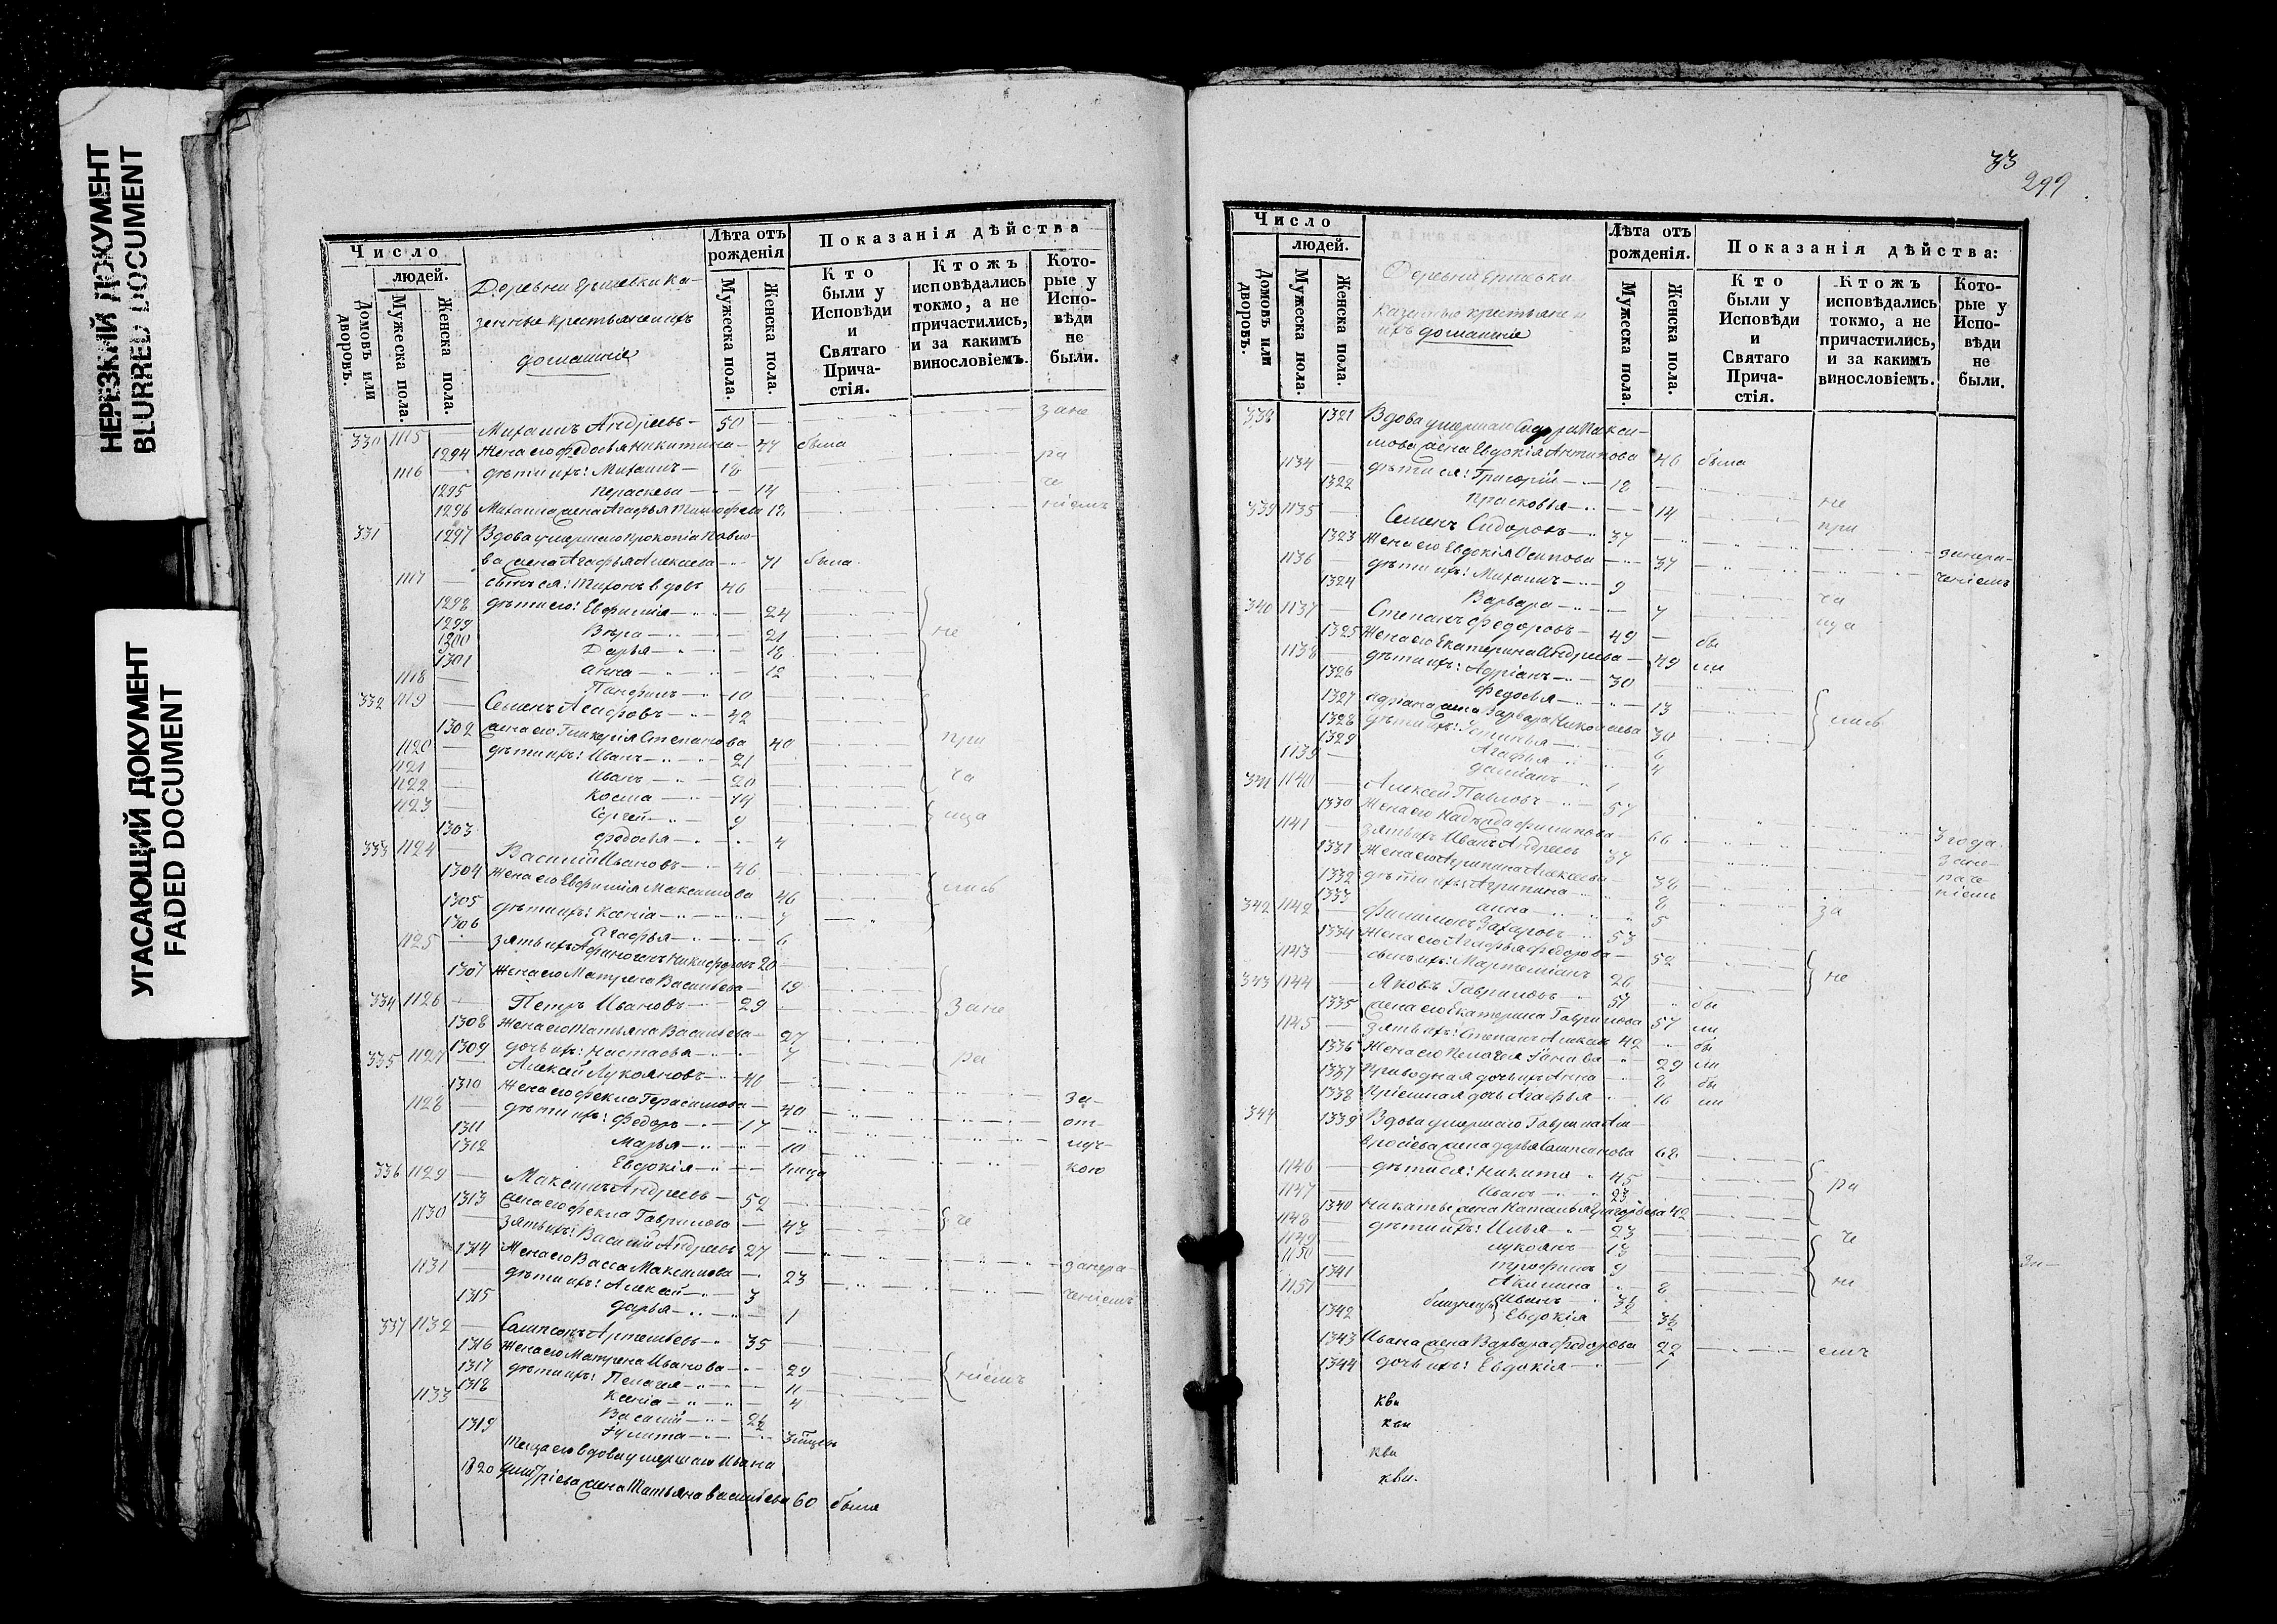 НЕРЕЗКИЙ ДОКУМЕНТ
BLURRED DOCUMENT
УГАСАЮЩИЙ ДОКУМЕНТ
FADED DOCUMENT
Число
людей.
Домовъ или дворовъ.
Мужеска пола.
Женска пола.
Деревни Ка-
зенные крестьяне и ихъ
домашніе
Лѣта отъ рожденія
Мужеска пола.
Женска пола.
Показанія дѣйства
Кто были у Исповѣди и Святаго Прича-стія.
Ктожъ исповѣдались токмо, а не причастились, и за какимъ винословіемъ.
Кото-рые у Испо-вѣди не были.
330 1115 Михаилъ Андреевъ 50 зане
1294 Жена его Федосья Никитина 47 была
1116 дѣти ихъ: Михаилъ 18 ра
1295 14 че
1296 Михаила жена Агафья 18 ніемъ
331 1297 Вдова умершаго Прокопія Павло-
ва жена Агафья Алексеева 71 была
1117 сынъ ея: Тихонъ вдовъ 46
1298 дѣти его: Евфимія 24
1299 Вѣра 21 не
1300 Дарья 18
1301 Анна 12
1118 Панфилъ 10
332 1119 Семенъ Агафовъ 42
1302 жена его Гликерія Степанова 40 при
1120 дѣти ихъ: Иванъ 21
1121 Иванъ 20 ча
1122 Косма 14
1123 Сергей 9 ща
1303 Федосья 4
333 1124 Василий Ивановъ 46
1304 Жена его Евфимія Максимова 46 лись
1305 дѣти ихъ: Ксенія 7
1306 Агафья 6
1125 зять ихъ Афиногенъ Никифоровъ 20
1307 Жена его Матрена Васильева 19
334 1126 Петръ Ивановъ 29 зане
1308 Жена его Татьяна Васильева 27
1309 дочь ихъ: Настасья 7
335 1127 Алексей Лукояновъ 40 ра
1310 Жена его Фекла Герасимова 40 за-
1128 дѣти ихъ: Федоръ 17 от-
1311 Марья 10 луч-
1312 Евдокія кою
336 1129 Максимъ Андреевъ 52
1313 жена его Фекла Гаврилова 43 че
1130 зять ихъ: Василий Андреевъ 27
1314 Жена его Васса Максимова 23 занера-
1131 дѣти ихъ: Алексей 3 ченіемъ
1315 Дарья 1
337 1132 Сампсонъ Артемьевъ 35
1316 Жена его Матрена Иванова 29
1317 дѣти ихъ: Пелагея 11 ніемъ
1318 Ксенія 4
1133 Василий 2½
1319 Улита
Теща его вдова умершаго Ивана
1320 Дмитріева жена Татьяна Васильева 60 была
33
299
Число
людей.
Домовъ или дворовъ.
Мужеска пола.
Женска пола.
казенные крестьяне и
ихъ домашніе
Лѣта отъ рожденія.
Мужеска пола.
Женска пола.
Показанія дѣйства:
Кто были у Исповѣди и Святаго Прича-стія.
Ктожъ исповѣдались токмо, а не причастились, и за какимъ винословіемъ.
Кото-рые у Испо-вѣди не были.
338 1321 Вдова умершаго Сидора Макси-
мова жена Евдокія Антипова 46 была
1134 дѣти ея: Григорій 18
1322 Прасковья 14 не
339 1135 Семенъ Сидоровъ 37 при
1323 Жена его Евдокія Осипова 37 занера-
1136 дѣти ихъ: Михаилъ 9 ченіемъ
1324 Варвара 7 ча
340 1137 Степанъ Федоровъ 49 ща
1325 Жена его Екатерина Андреева 49 бы
1138 дѣти ихъ: Адріанъ 30 ли
1326 Федосья 13
1327 Адріана жена Варвара Николаева 30 лись
1328 дѣти ихъ: Устинья 6
1329 Агафья 4
1139 Даміанъ 1
341 1140 Алексей Павловъ 57
1330 Жена его Надежда Филипова 66 3 года
1141 зять ихъ Иванъ Андреевъ 37 зане-
1331 Жена его Агрипина Алексеева 38 раче-
1332 дѣти ихъ: Агрипина 8 ніемъ
1333 Анна 5 за
342 1142 Филимонъ Захаровъ 53
1334 Жена его Агафья Федорова 52
1143 сынъ ихъ: Мартиміанъ 26 не
343 1144 Яковъ Гавриловъ 57 бы
1335 жена его Екатерина Гаврилова 57 ли
1145 зять ихъ: Степанъ Алексеевъ 42 бы
1336 Жена его Пелагея 29 ли
1337 Приводная дочь ихъ Анна 8 бы
1338 Пріемная дочь Агафья 16 ли
344 1339 Вдова умершаго Гаврила Ам-
вросіева жена Дарья Сампсонова 68
1146 дѣти ея: Никита 45 ра
1147 Иванъ 23
1340 Никиты жена Наталья Григорьева 42
1148 дѣти ихъ: Илья 23 че
1149 Лукоянъ 13
1150 Трофимъ 9
1341 Акилина 8 ні
1151 близнецы Иванъ 3½
1342 Евдокія 3½
1343 Ивана жена Варвара Федорова 22 емъ
1344 дочь ихъ: Евдокія 1